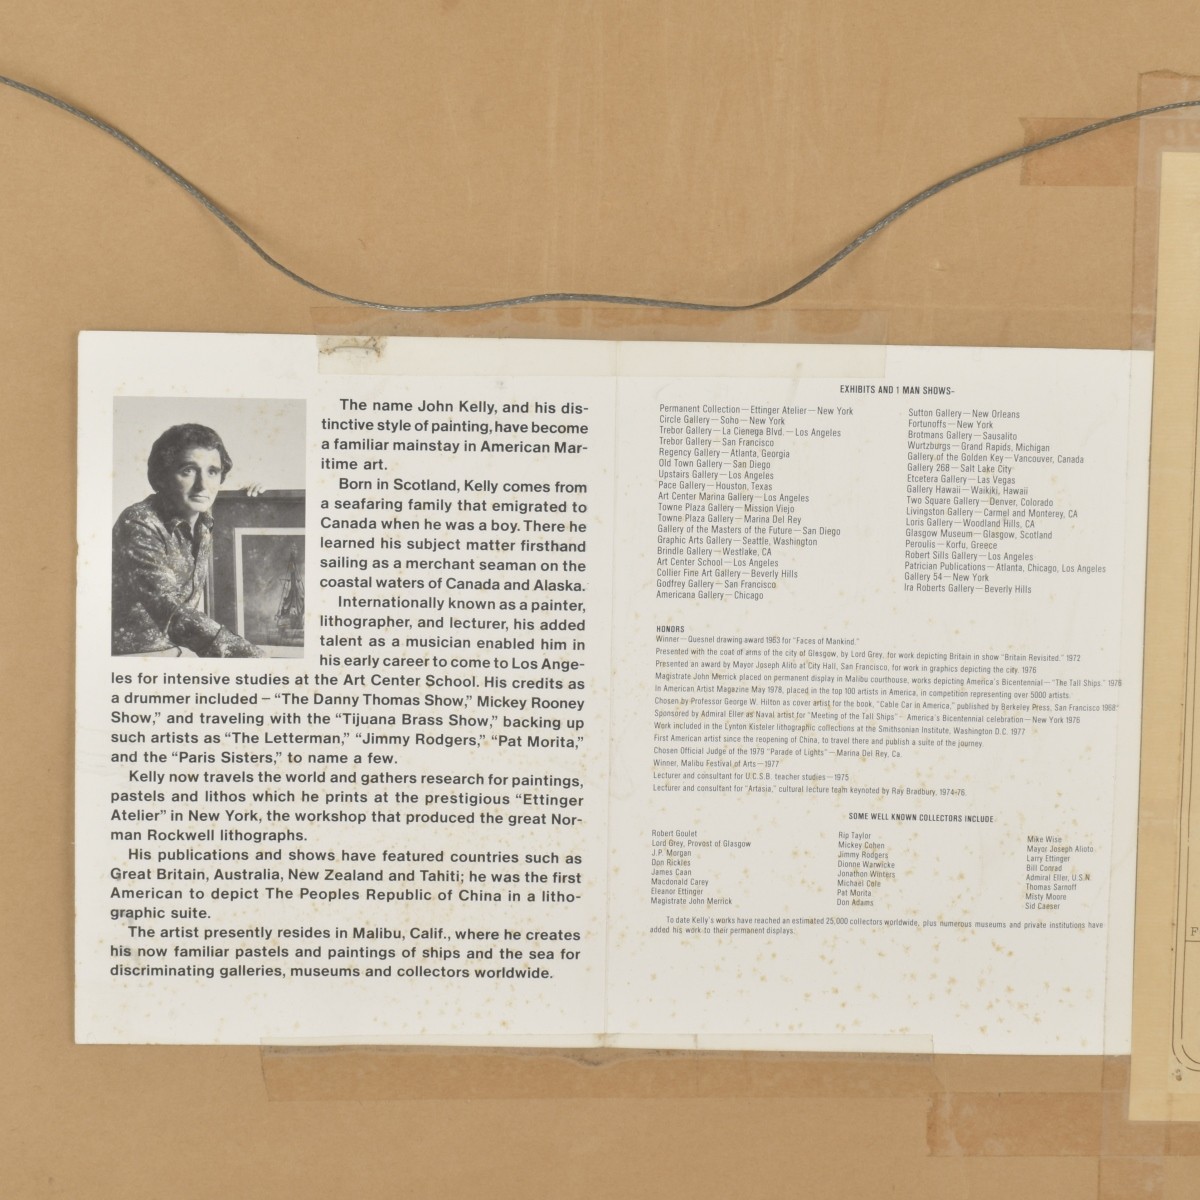 The name John Kelly, and his dis-
tinctive style of painting, have become
a familiar mainstay in American Mar-
itime art.
Born in Scotland, Kelly comes from
a seafaring family that emigrated to
Canada when he was a boy. There he
learned his subject matter firsthand
sailing as a merchant seaman on the
coastal waters of Canada and Alaska.
Internationally known as a painter,
lithographer, and lecturer, his added
talent as a musician enabled him in
his early career to come to Los Ange-
les for intensive studies at the Art Center School. His credits as
a drummer included – “The Danny Thomas Show,” Mickey Rooney
Show,” and traveling with the “Tijuana Brass Show,” backing up
such artists as “The Letterman,” “Jimmy Rodgers,” “Pat Morita,”
and the “Paris Sisters,” to name a few.
Kelly now travels the world and gathers research for paintings,
pastels and lithos which he prints at the prestigious “Ettinger
Atelier” in New York, the workshop that produced the great Nor-
man Rockwell lithographs.
His publications and shows have featured countries such as
Great Britain, Australia, New Zealand and Tahiti; he was the first
American to depict The Peoples Republic of China in a litho-
graphic suite.
The artist presently resides in Malibu, Calif., where he creates
his now familiar pastels and paintings of ships and the sea for
discriminating galleries, museums and collectors worldwide.
EXHIBITS AND 1 MAN SHOWS–
Permanent Collection—Ettinger Atelier—New York
Circle Gallery—Soho—New York
Trebor Gallery—La Cienega Blvd.—Los Angeles
Trebor Gallery—San Francisco
Regency Gallery—Atlanta, Georgia
Old Town Gallery—San Diego
Upstairs Gallery—Los Angeles
Pace Gallery—Houston, Texas
Art Center Marina Gallery—Los Angeles
Towne Plaza Gallery—Mission Viejo
Towne Plaza Gallery—Marina Del Rey
Gallery of the Masters of the Future—San Diego
Graphic Arts Gallery—Seattle, Washington
Brindle Gallery—Westlake, CA
Art Center School—Los Angeles
Collier Fine Art Gallery—Beverly Hills
Godfrey Gallery—San Francisco
Americana Gallery—Chicago
Sutton Gallery—New Orleans
Fortunoffs—New York
Brotmans Gallery—Sausalito
Wurtzburgs—Grand Rapids, Michigan
Gallery of the Golden Key—Vancouver, Canada
Gallery 268—Salt Lake City
Etcetera Gallery—Las Vegas
Gallery Hawaii—Waikiki, Hawaii
Two Square Gallery—Denver, Colorado
Livingston Gallery—Carmel and Monterey, CA
Loris Gallery—Woodland Hills, CA
Glasgow Museum—Glasgow, Scotland
Peroulis—Korfu, Greece
Robert Sills Gallery—Los Angeles
Patrician Publications—Atlanta, Chicago, Los Angeles
Gallery 54—New York
Ira Roberts Gallery—Beverly Hills
HONORS
Winner—Quesnel drawing award 1953 for “Faces of Mankind.”
Presented with the coat of arms of the city of Glasgow, by Lord Grey, for work depicting Britain in show “Britain Revisited.” 1972
Presented an award by Mayor Joseph Alito at City Hall, San Francisco, for work in graphics depicting the city. 1976
Magistrate John Merrick placed on permanent display in Malibu courthouse, works depicting America's Bicentennial—“The Tall Ships.” 1976
In American Artist Magazine May 1978, placed in the top 100 artists in America, in competition representing over 5000 artists.
Chosen by Professor George W. Hilton as cover artist for the book, “Cable Car in America,” published by Berkeley Press, San Francisco 1968
Sponsored by Admiral Eller as Naval artist for “Meeting of the Tall Ships”- America's Bicentennial celebration—New York 1976
Work included in the Lynton Kisteler lithographic collections at the Smithsonian Institute, Washington D.C. 1977
First American artist since the reopening of China, to travel there and publish a suite of the journey.
Chosen Official Judge of the 1979 “Parade of Lights”—Marina Del Rey, Ca.
Winner, Malibu Festival of Arts—1977
Lecturer and consultant for U.C.S.B. teacher studies—1975
Lecturer and consultant for “Artasia,” cultural lecture team keynoted by Ray Bradbury, 1974-76.
SOME WELL KNOWN COLLECTORS INCLUDE
Robert Goulet
Lord Grey, Provost of Glasgow
J.P. Morgan
Don Rickles
James Caan
Macdonald Carey
Eleanor Ettinger
Magistrate John Merrick
Rip Taylor
Mickey Cohen
Jimmy Rodgers
Dionne Warwicke
Jonathon Winters
Michael Cole
Pat Morita
Don Adams
Mike Wise
Mayor Joseph Alioto
Larry Ettinger
Bill Conrad
Admiral Eller, U.S.N.
Thomas Sarnoff
Misty Moore
Sid Caeser
To date Kelly's works have reached an estimated 25,000 collectors worldwide, plus numerous museums and private institutions have
added his work to their permanent displays.
F